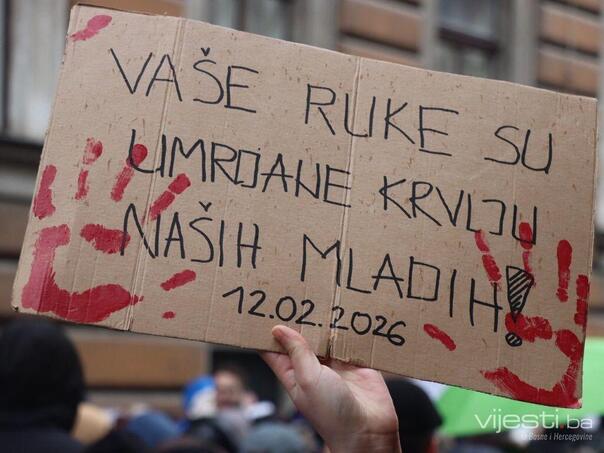 VAŠE RUKE SU
UMRDANE KRVLJU
NAŠIH MLADIH!
12.02.2026
vijesti.ba
iz Bosne i Hercegovine